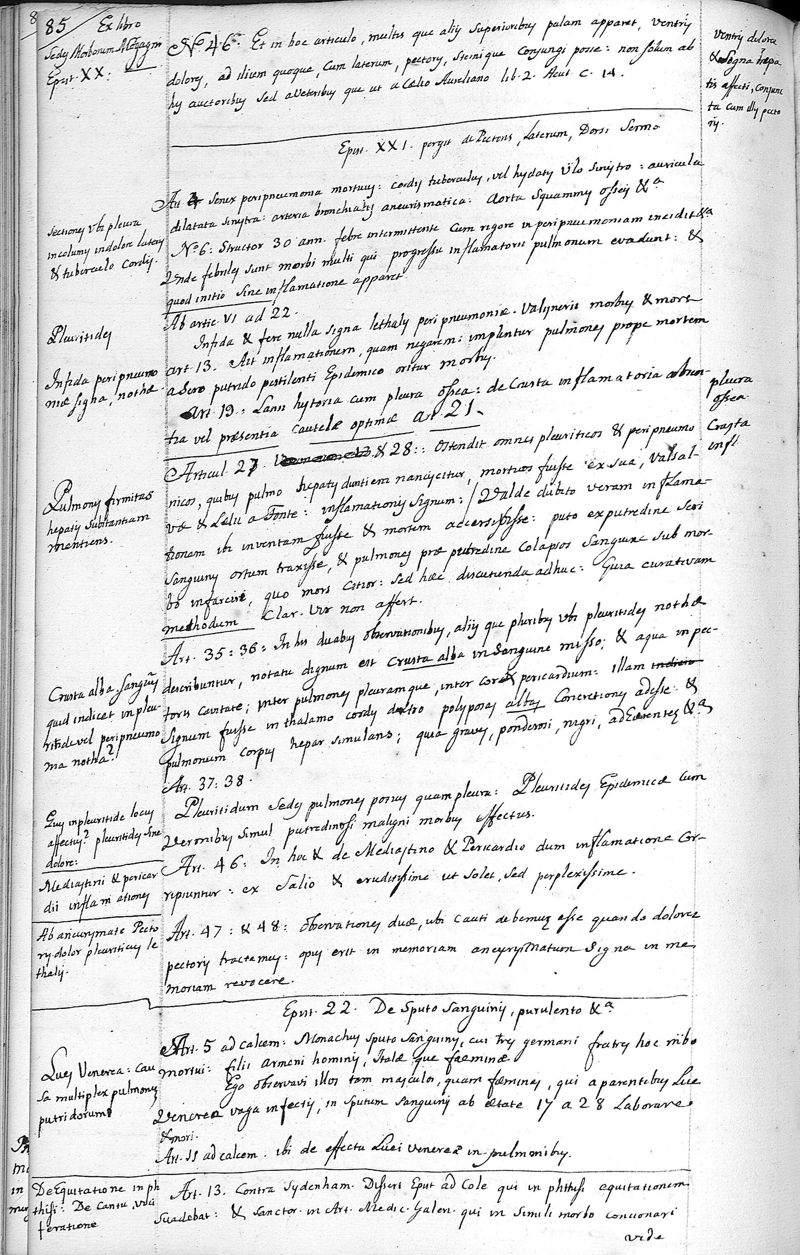 85 Ex libro
Sedes Morborum Morgagni
Epist. XX:
N.º 46. Et in hoc articulo, multis que alijs superioribus palam apparet, ventris
dolores, ad ilium quoque, cum laterum, pectoris, sternique conjungi posse: non solum ab
his auctoribus sed a Veteribus que ut a Cælio Aureliano lib. 2. Acut. C. 14.
Ventris dolores
& signa hepa
tis affecti, conjunc
ta cum illis pecto
ris.
Epist. XXI. pergit de Pectoris, laterum, Dorsi Sermo
Sectiones ubi pleura
incolumis in dolore lateris
& tuberculo Cordis.
Art. Senex peripneumonia mortuus: cordis tuberculus, vel hydatis Ulo sinistro: auricula
dilatata sinistra: arteria bronchialis aneurismatica: Aorta squammis osseis &ª
N.º 6: Structor 30 ann. febre intermittente cum rigore in peripneumoniam incidit &ª
Unde febriles sunt morbi multi qui progressu inflamatorii pulmonum evadunt: &
quod initio sine inflamatione apparet
Pleuritides
Ab artic. VI ad 22.
Infida peripneumo
niæ signa, nothæ
Infida & fere nulla signa lethalis peripneumoniæ. Valisneris morbus & mors
art. 13. Ait inflamationem, quam negarem: implentur pulmones prope mortem
a sero putrido pestilenti Epidemico oritur morbus.
Art. 19: Lanii hystoria cum pleura ossea: de Crusta inflamatoria absen-
tia vel præsentia cautelæ optimæ art 21.
pleura
ossea
Crusta
infl.
Pulmonis firmitas
hepatis substantiam
mentiens.
Articul. 27 & 28: Ostendit omnes pleuriticos & peripneumo
nicos, quibus pulmo hepatis duntiem nanciscitur, mortuos fuisse ex sua, Valsal-
væ & Lelii a Fonte: inflamationis signum: / Valde dubito veram inflama-
tionem ibi inventam fuisse & mortem accersisse: puto ex putredine seri
Sanguinis ortum traxisse, & pulmones præ putredine colapsos sanguine sub mor-
bo infarcire, quo mors citior: sed hæc discutienda adhuc: Quia curativam
methodum Clar. Vir non affert.
Crusta alba sanguis
quid indicet in pleu-
ritide vel peripneumo
nia notha?
Art. 35: 36: In his duabus observationibus, alijs que pluribus ubi pleuritides nothæ
describuntur, notatu dignum est crusta alba in sanguine misso; & aqua in pec-
toris cavitate; inter pulmones pleuramque, inter cor & pericardium: illam
Signum fuisse in thalamo cordis dextro polyposas albas concretiones adesse &
pulmonum corpus hepar simulans; quia graves, ponderosi, nigri, adhærentes &ª
Art. 37: 38.
Ejus in pleuritide locus
affectus? pleuritides sine
dolore:
Pleuritidum sedes pulmones potius quam pleura: Pleuritides Epidemicæ cum
Vermibus simul putredinosi maligni morbus effectus.
Mediastini & pericar
dii inflamationes
Art. 46: In hoc & de Mediastino & Pericardio dum inflamatione cor-
ripiuntur: ex Salio & eruditissime ut solet, sed perplexissime.
Ab aneurysmate Pecto
ris dolor pleuriticus le
thalis.
Art. 47: & 48: observationes duæ, ubi cauti debemus esse quando dolores
pectoris tractamus: opus erit in memoriam aneurysmatum signa in me
moriam revocare.
Epist. 22. De Sputo Sanguinis, purulento &ª
Lues Venerea: cau
sa multiplex pulmones
putridorum
Art. 5 ad calcem: Monachus sputo sanguinis, cui tres germani fratres hoc morbo
mortui: filii Armeni hominis, Italæ que fæminæ
Ego observavi illos tam masculos, quam fæmines, qui a parentibus Lue
Venerea vaga infectis, in sputum sanguinis ab ætate 17 a 28 laborare
& mori.
Art. 11 ad calcem. ibi de effectu Luei Venereæ in pulmonibus.
De Equitatione in ph
thisi: De Cantu, voci
feratione
Art. 13. Contra Sydenham. Dissert. Epist. ad Cole qui in phthisi equitationem
suadebat: & Sanctor. in Art. Medic. Galen. qui in simili morbo concionari
vide